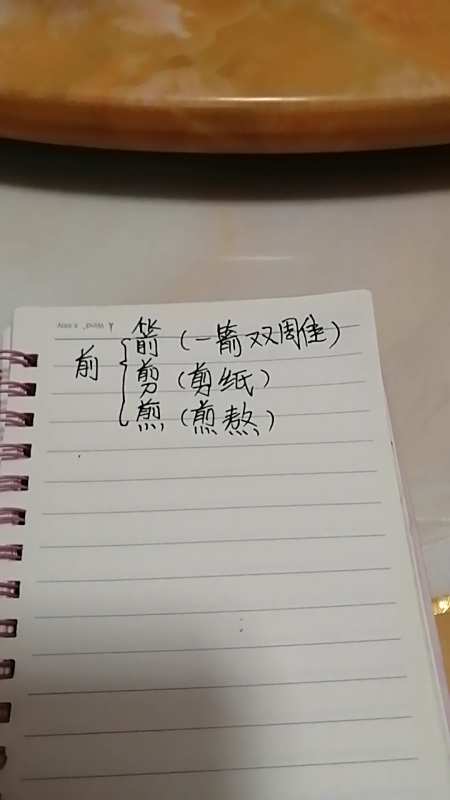 箭（一箭双雕）
前
剪（剪纸）
煎（煎熬）